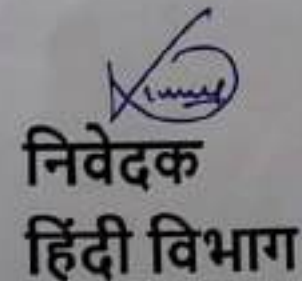 निवेदक
हिंदी विभाग